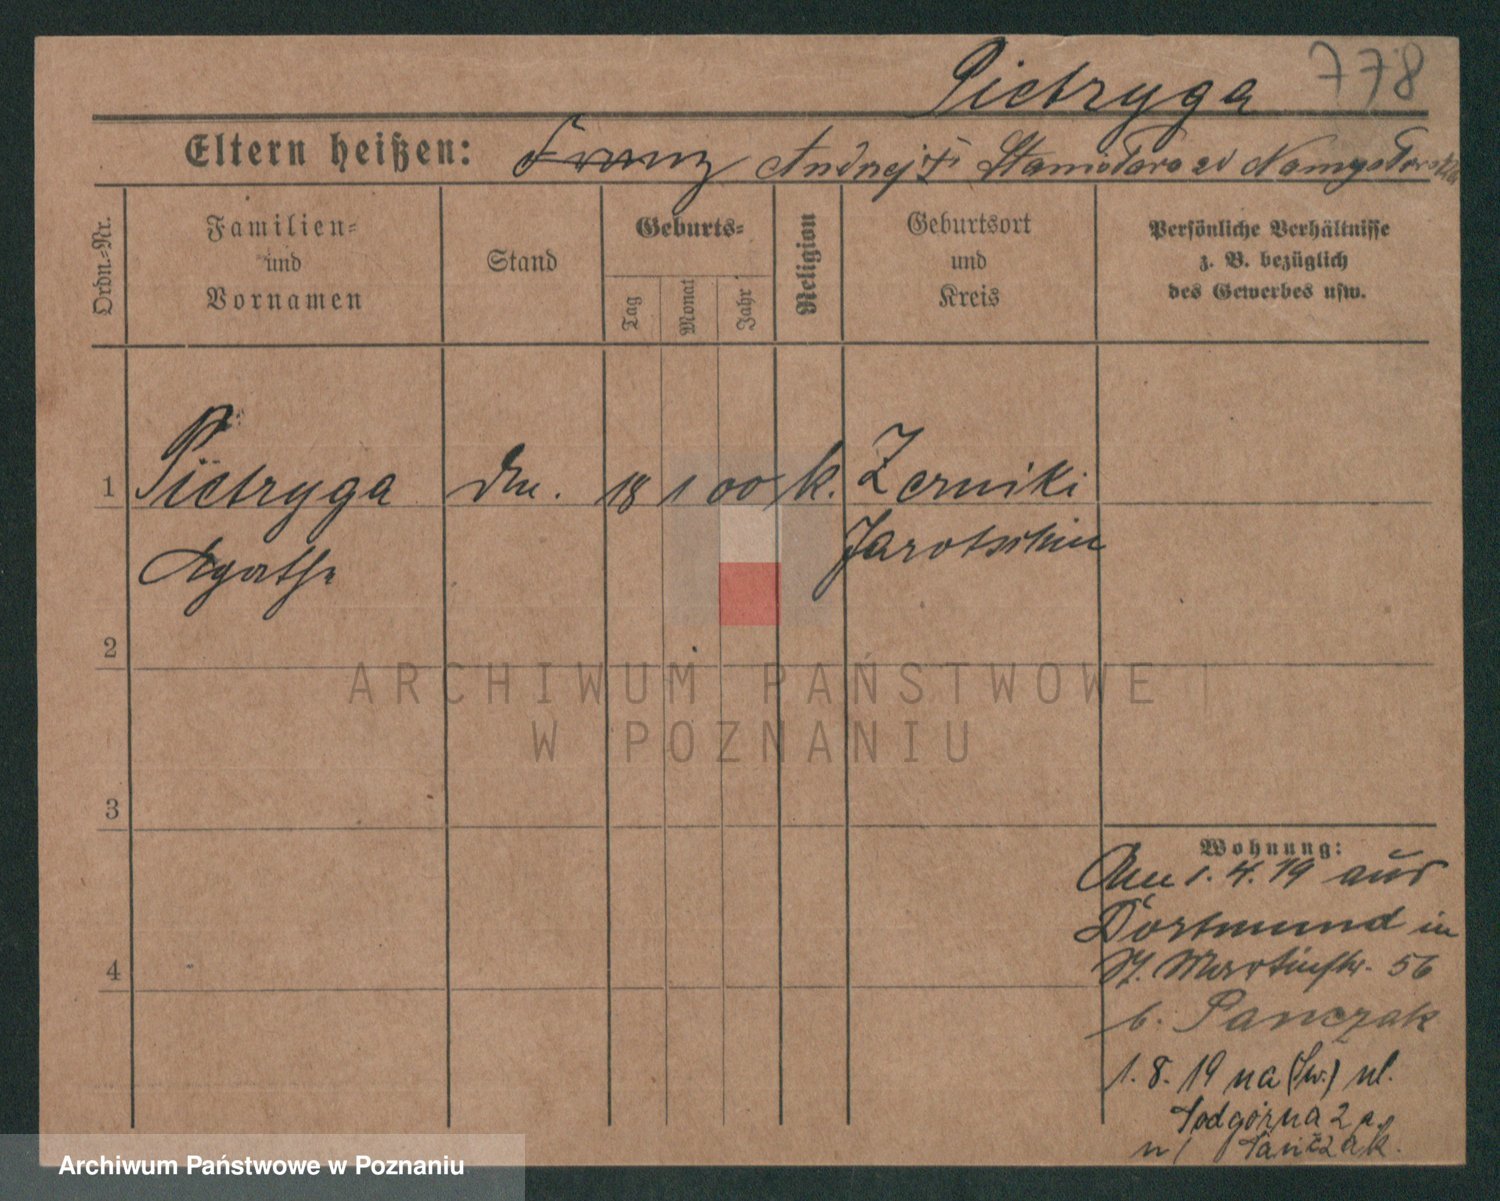 Pietryga 778
Eltern heißen: Franz Andrzej i Stanisława zd Namysłowska
Ordn.-Nr.
Familien- und Vornamen
Stand
Geburts-
Tag
Monat
Jahr
Religion
Geburtsort und Kreis
Persönliche Verhältnisse
z. B. bezüglich
des Gewerbes usw.
1 Pietryga 18 1 00 k. Zerniki
Agathe Jarotschin
2
3
4
Wohnung:
Am 1.4.19 aus
Dortmund in
St. Martinstr. 56
b. Panczak
1.8.19 na (Św.) ul.
Podgórna 2a.
Pańczak.
ARCHIWUM PAŃSTWOWE
W POZNANIU
Archiwum Państwowe w Poznaniu